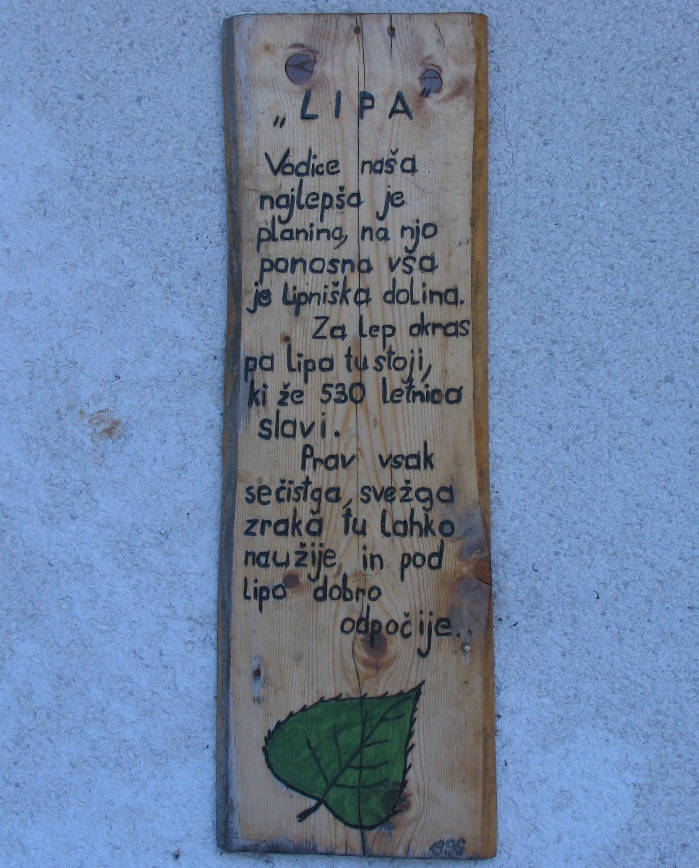 „LIPA"
Vodice naša
najlepša je
planina, na njo
ponosna vsa
je lipniška dolina.
Za lep okras
pa lipa tu stoji,
ki že 530 letnico
slavi.
Prav vsak
se čistga, svežga
zraka tu lahko
naužije in pod
lipo dobro
odpočije.